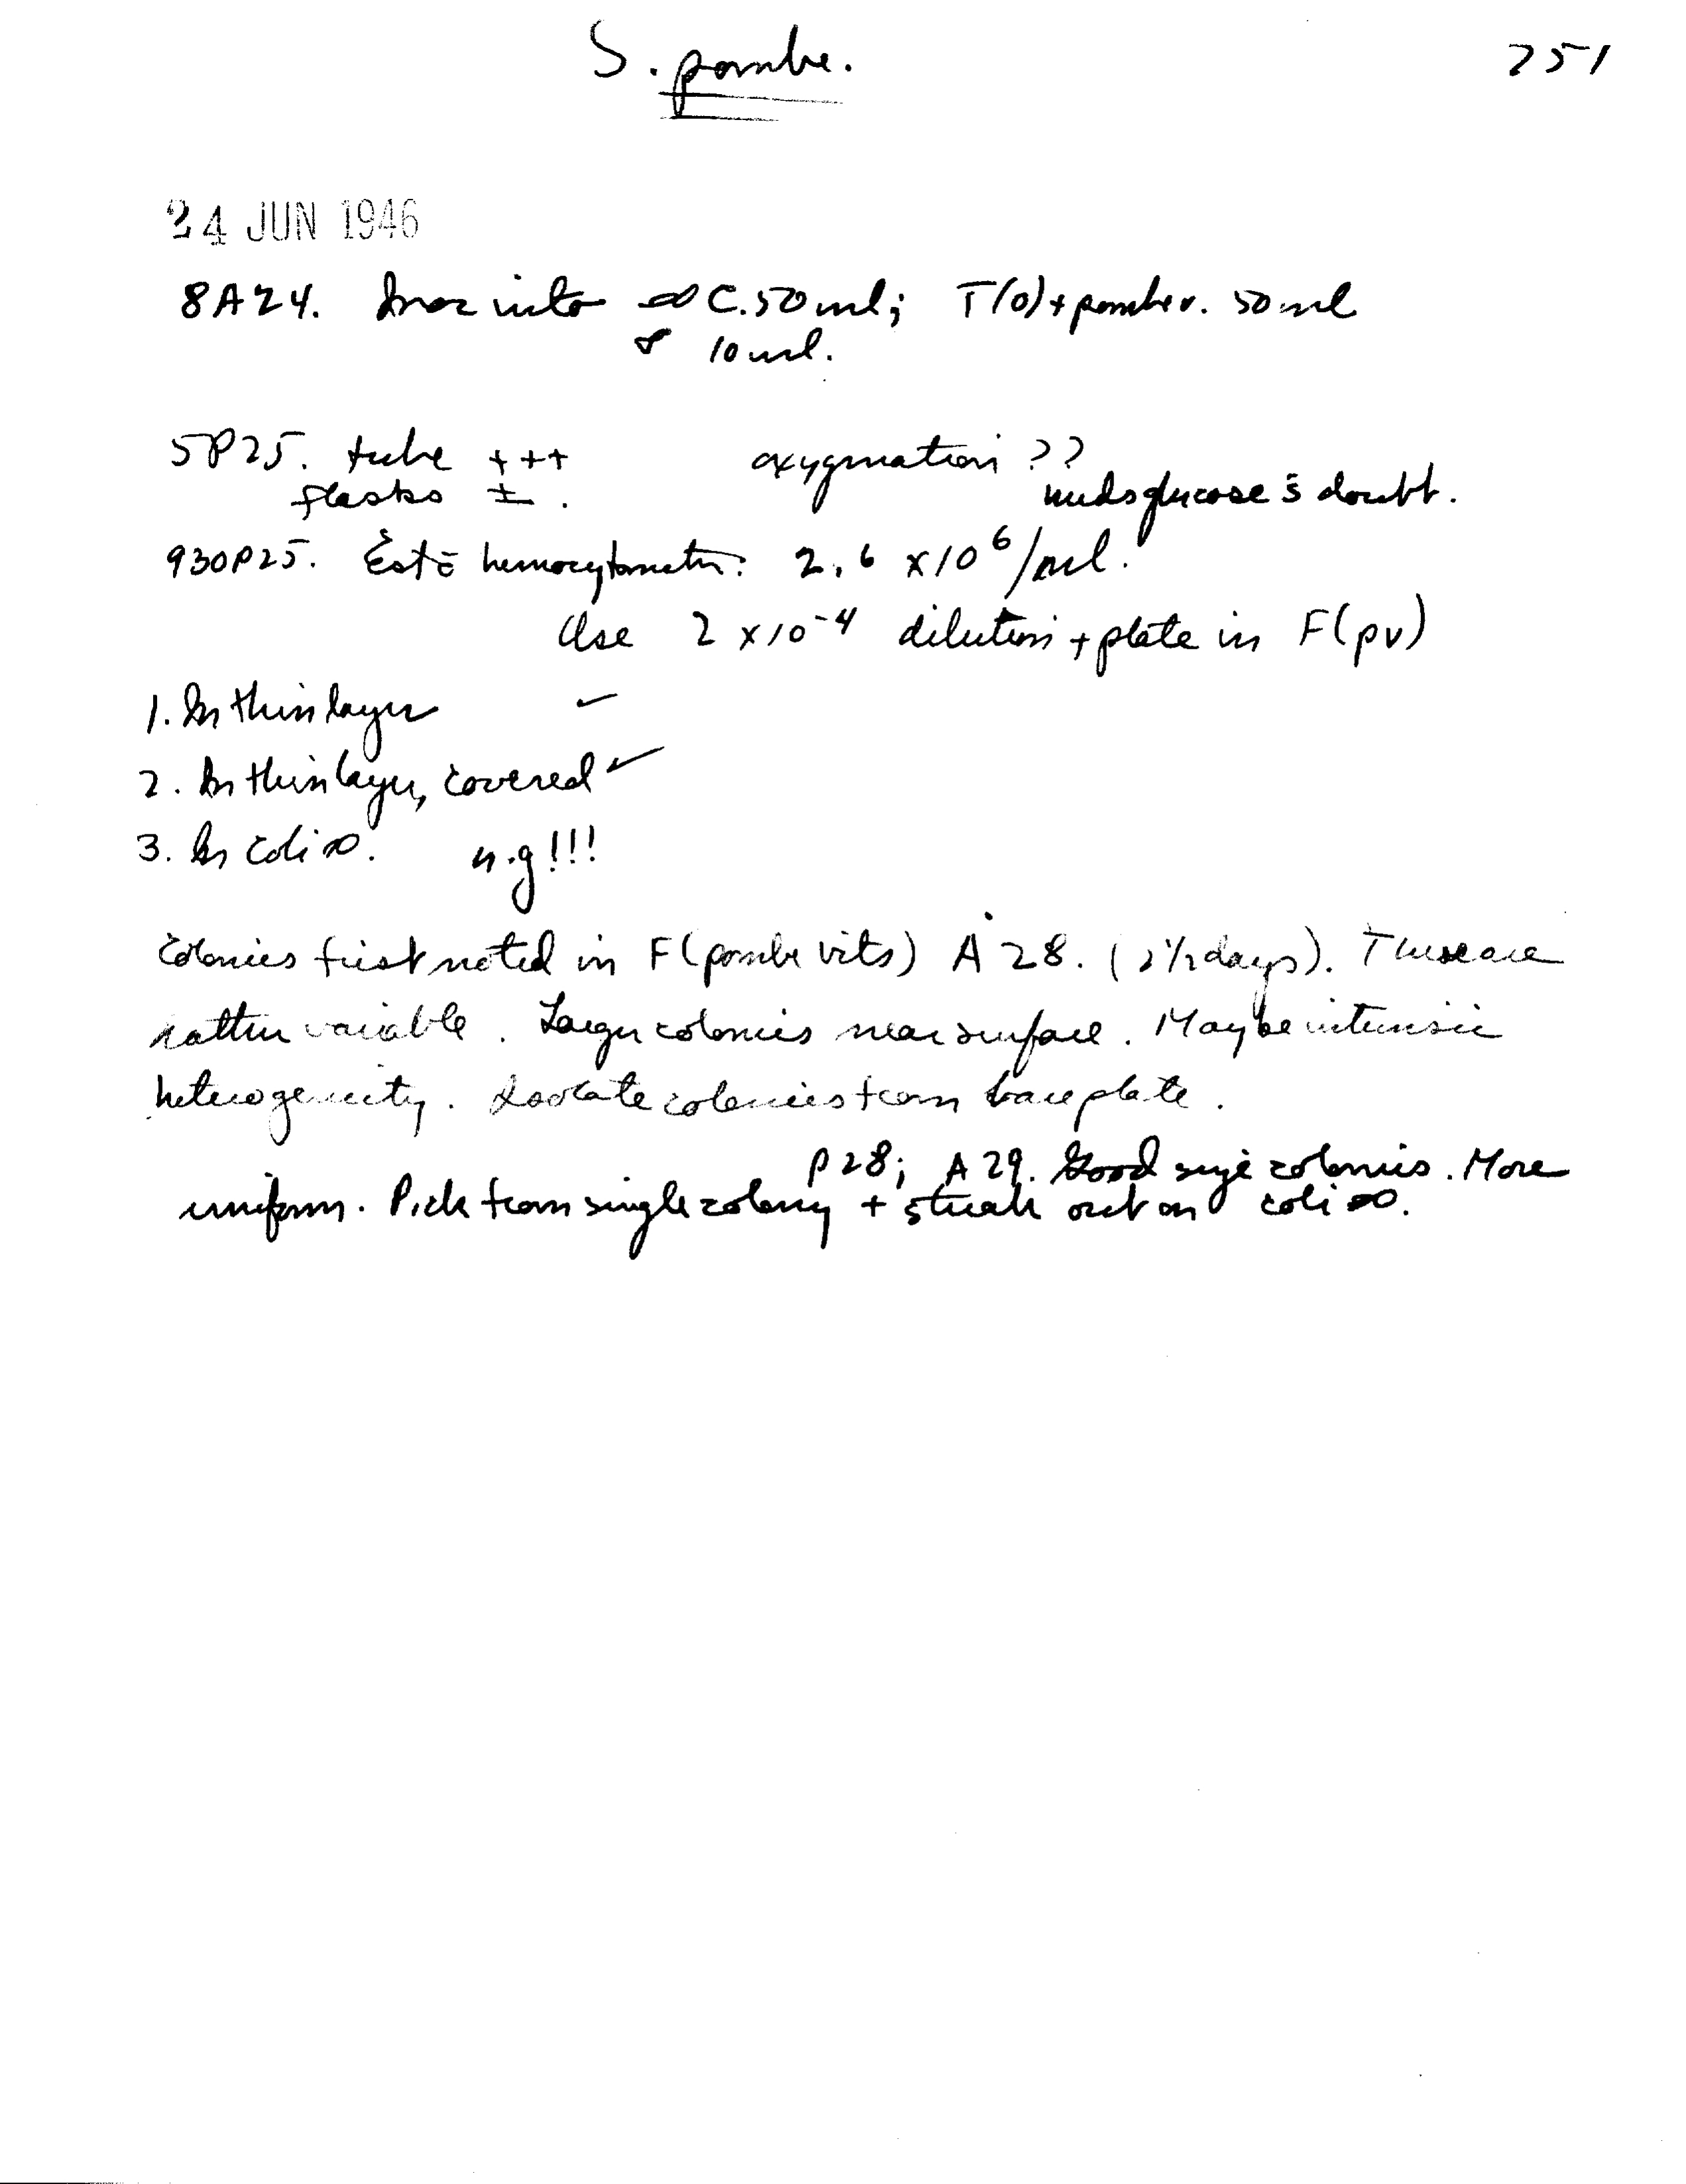 S. pombe.
251
24 JUN 1946
8A24. Inoc into ∞ C. 50 ml; T(0) + pombe v. 50 ml
& 10 ml.
5P25. tube +++ oxygenation ??
flasks ±. needs glucose s̄ doubt.
930P25. Est c̄ hemocytometer: 2.6 x 10⁶/ml.
Use 2 x 10⁻⁴ dilution + plate in F(pv)
1. In thin layer ✓
2. In thin layer, covered ✓
3. In coli ∞. n.g!!!
Colonies first noted in F(pombe vits) A 28. (2½ days). These are
rather variable. Larger colonies near surface. Maybe intrinsic
heterogeneity. Isolate colonies from plate.
P28; A29. Good size colonies. More
uniform. Pick from single colony + streak out on coli ∞.